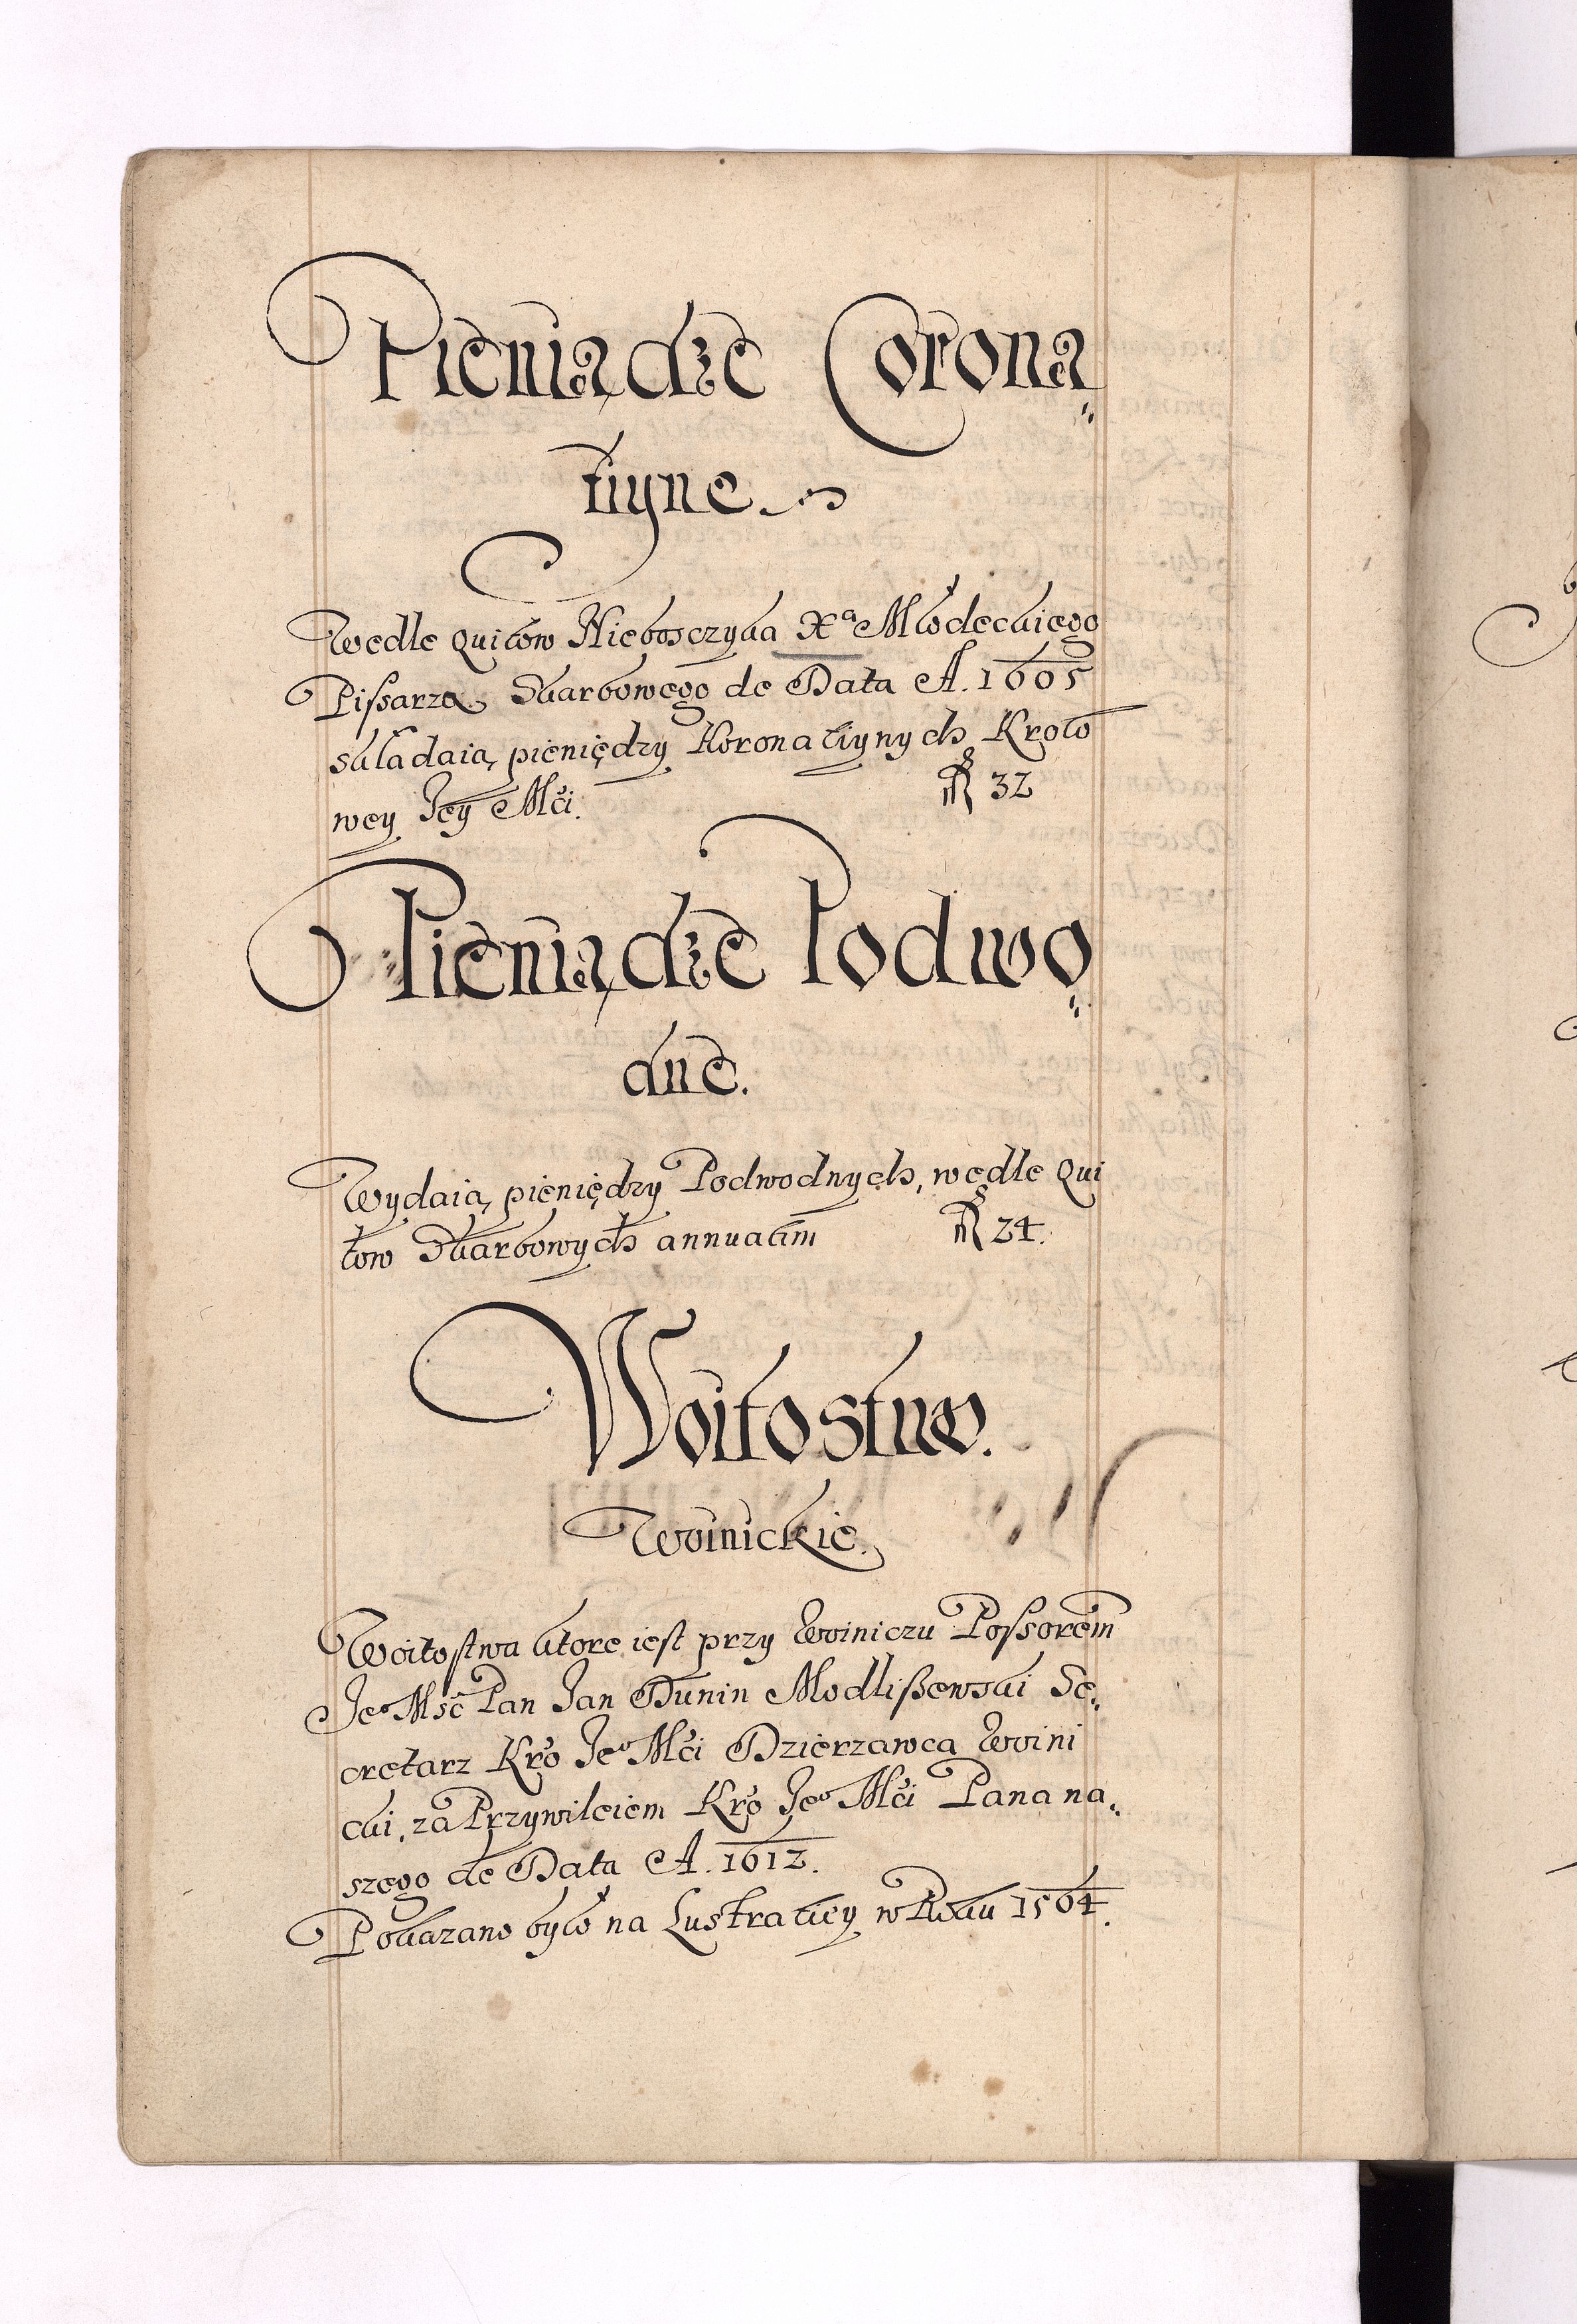 Pieniądze Corona„
tiyne.
Wedle quitow Nieboszczyka Xᵃ Młodeckiego
Pissarza Skarbowego de Data A. 1605
składaią pieniędzy Koronatiynych Krolo
wey Jey Mći. 32
Pieniądze Podwo„
dne.
Wydaią pieniędzy Podwodnych, wedle Qui
tow Skarbowych annuatim 24.
Woitostwo.
Woinickie.
Woitostwa ktore iest przy Woiniczu Possorem
Jeº Msć Pan Jan Dunin Modliszewski Se„
cretarz Kro Jeº Mći Dzierzawca Woini
cki, za Przywileiem Kro Jeº Mći Pana na„
szego de Data A. 1612.
Pokazano było na Lustratiey w Roku 1564.